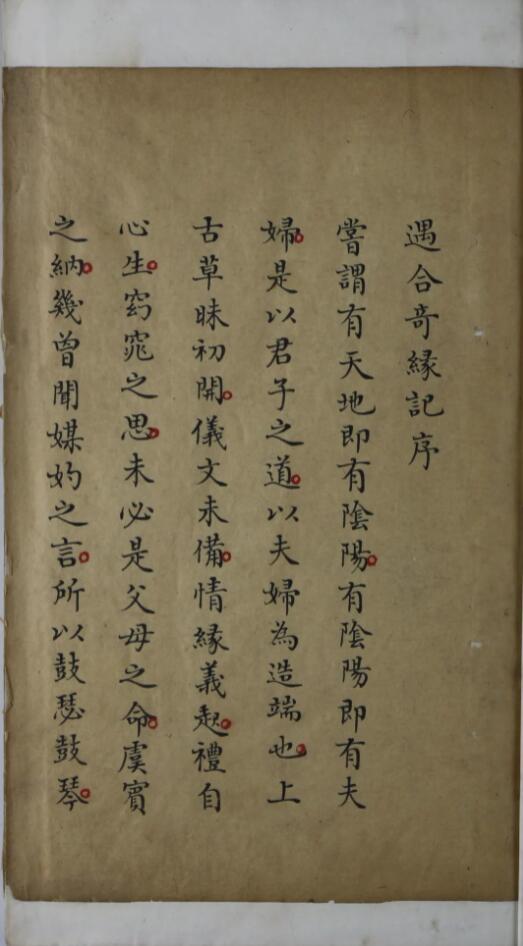 遇合奇緣記序
嘗謂有天地即有陰陽。有陰陽即有夫
婦。是以君子之道。以夫婦為造端也。上
古草昧初開。儀文未備。情緣義起。禮自
心生。窈窕之思。未必是父母之命。虞賓
之納。幾曾聞媒妁之言。所以鼓瑟鼓琴。